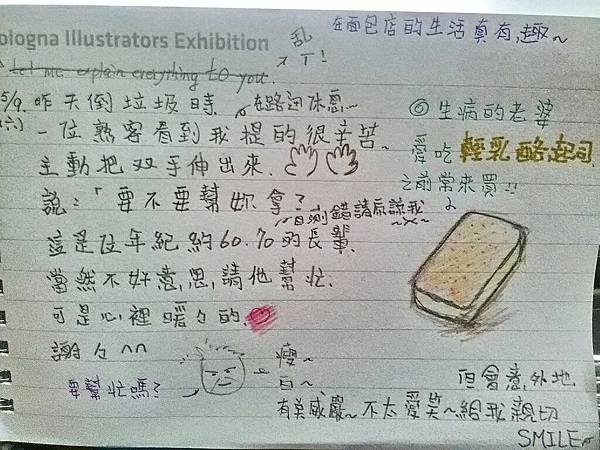 ologna Illustrators Exhibition
在面包店的生活真有趣~
乱
丁!
Let me explain everything to you.
5/9. 昨天倒垃圾時. 在路边休息~
(六) 一位熟客看到我提的很辛苦~
主動把双手伸出來.
說:「要不要幫妳拿?
目測錯請原諒我
這是位年紀約60.70的長輩.
當然不好意思請他幫忙.
可是心裡暖々的.
謝々^^
要幫忙嗎?
瘦~
白~
有莫威嚴~不太愛笑~給我親切
但會意外地.
SMILE~
◎生病的老婆
愛吃輕乳酪起司.
之前常來買!!